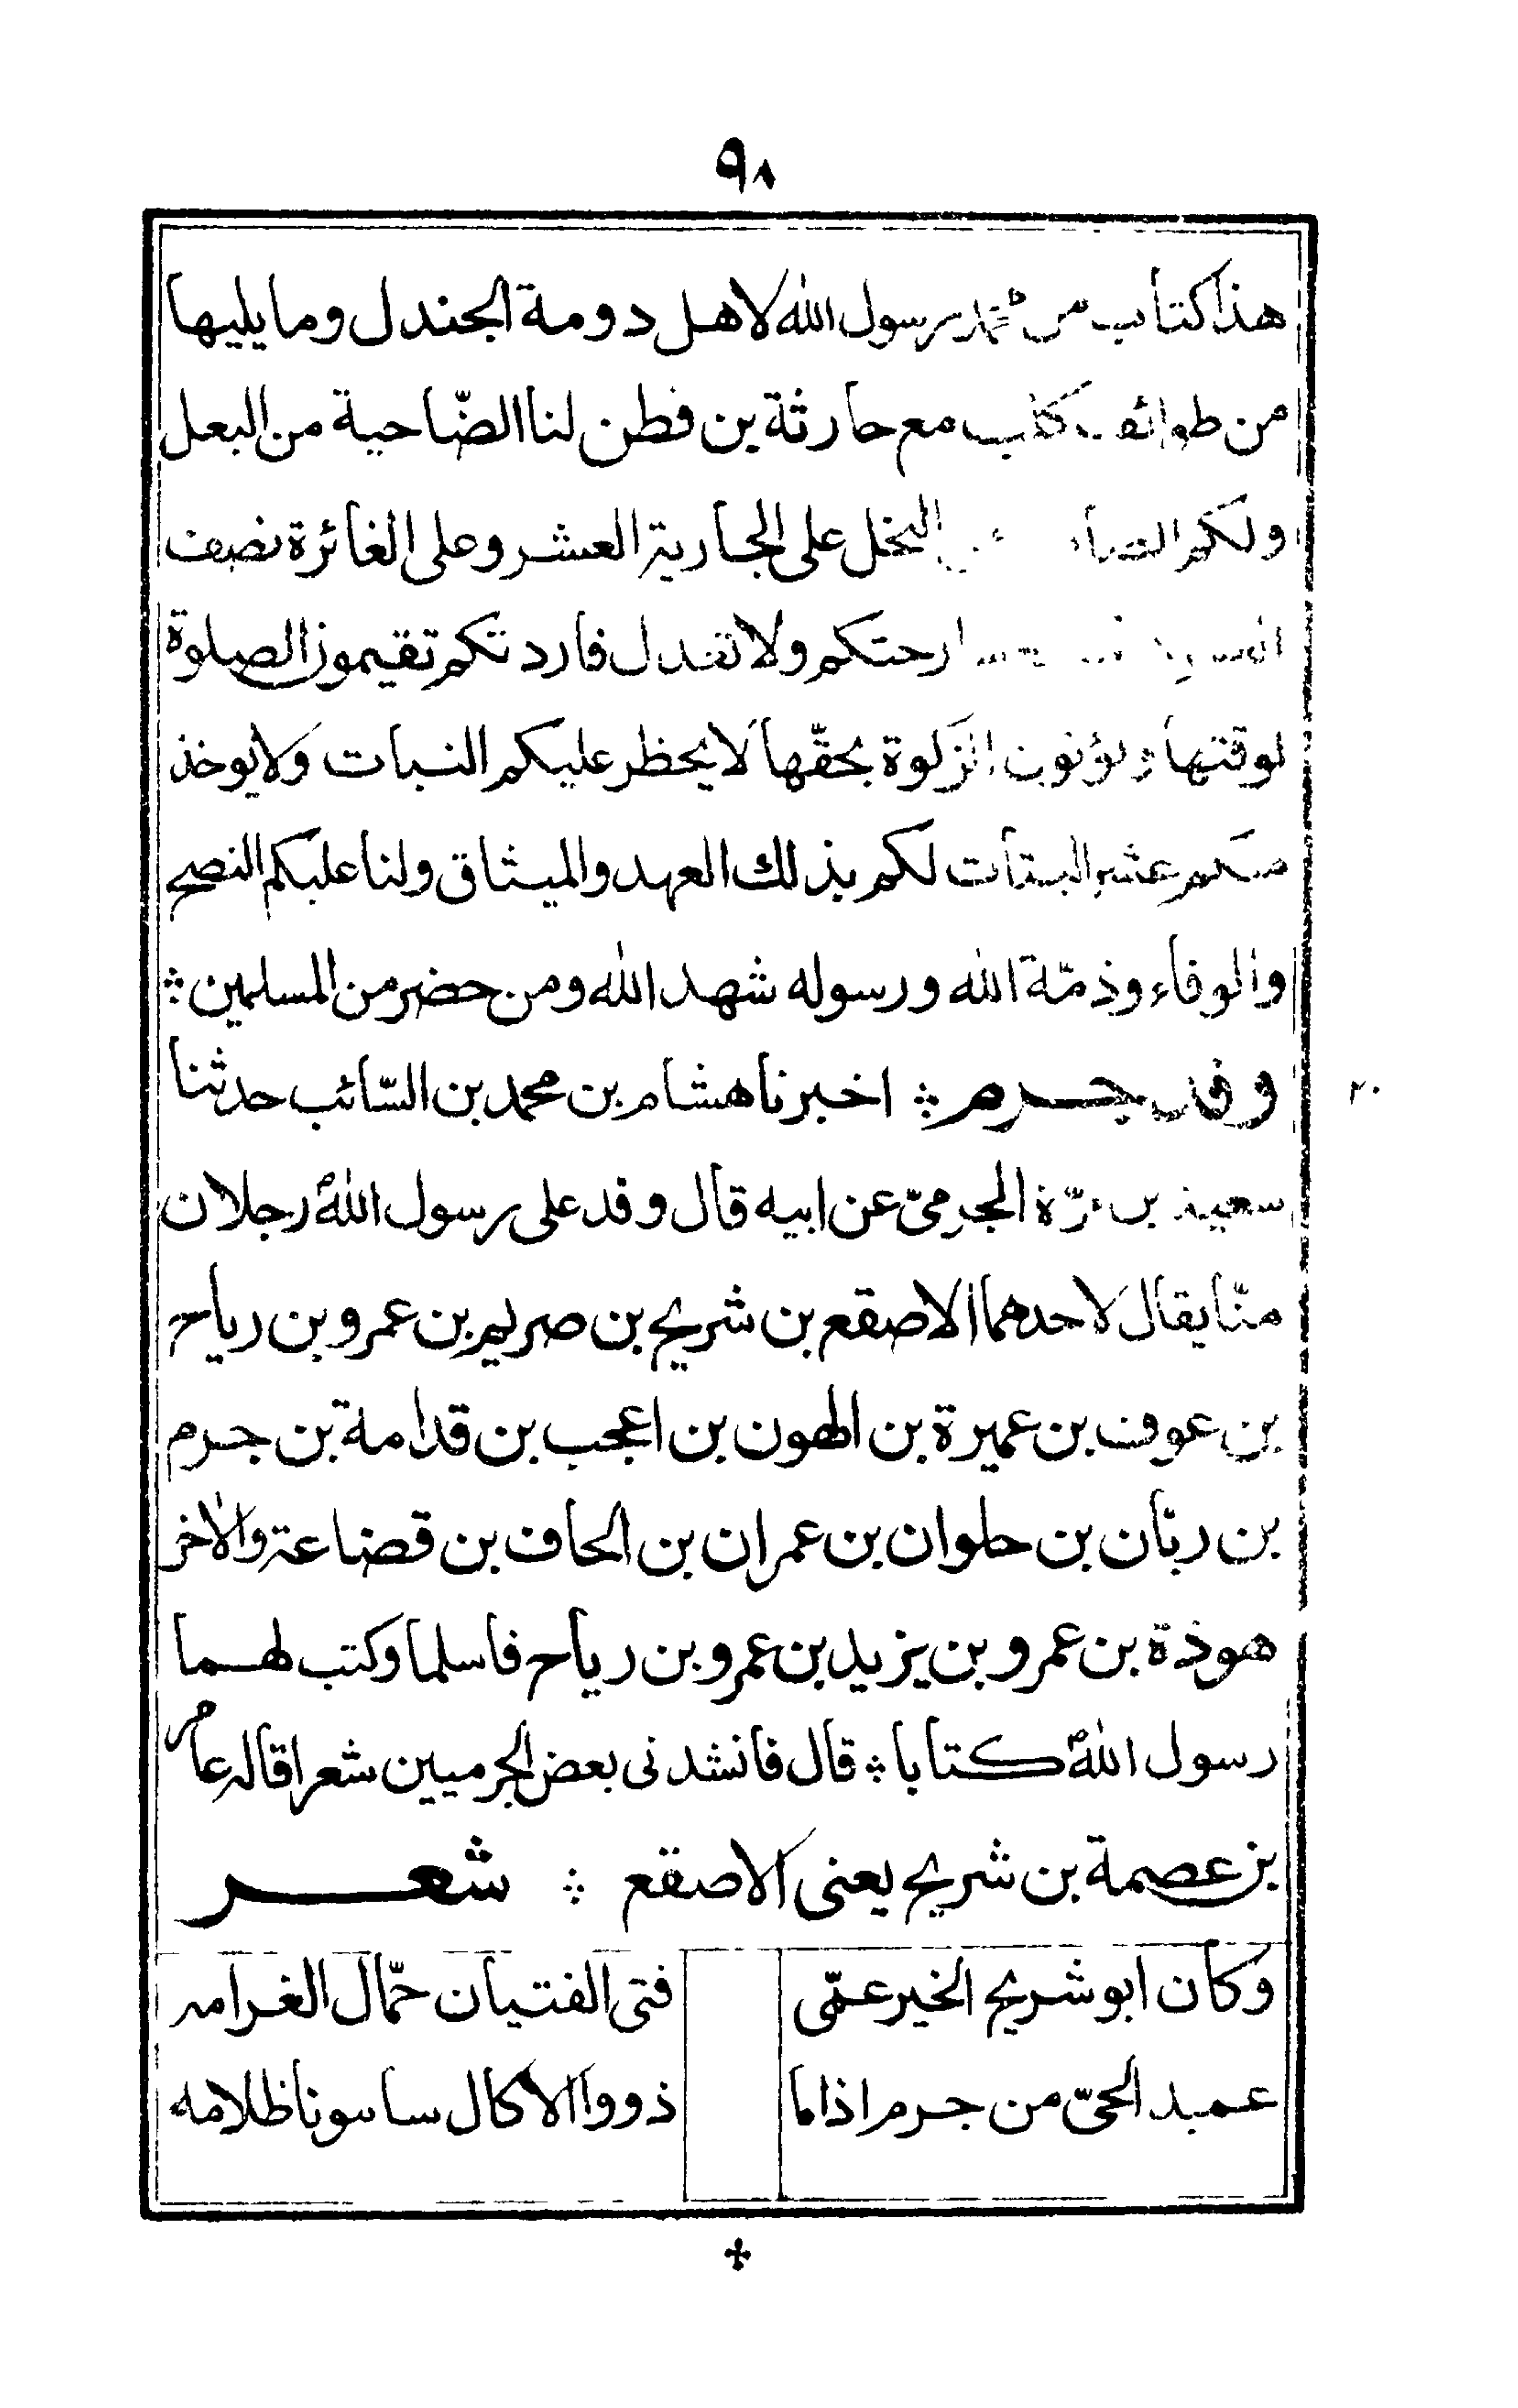 ٩٨
هذا كتاب من محمد رسول الله لاهل دومة الجندل وما يليها
من طوائف كلب مع حارثة بن قطن لنا الضّاحية من البعل
ولكم النخل على الجارية العشر وعلى الغائرة نصف
ارحتكم ولا تعدل فاردتكم تقيمون الصلوة
لوقتها وتؤتون الزكوة بحقّها لا يحظر عليكم النبات ولا يوخذ
منكم عشر البتات لكم بذلك العهد والميثاق ولنا عليكم النصح
والوفاء وذمّة الله ورسوله شهد الله ومن حضر من المسلمين ؞
وفد جرم ؞ اخبرنا هشام بن محمد بن السّائب حدثنا
٢٠
سعيد بن مرّة الجرمىّ عن ابيه قال وفد على رسول الله رجلان
منّا يقال لاحدهما الاصقع بن شريح بن صريم بن عمرو بن رياح
بن عوف بن عميرة بن الهون بن اعجب بن قدامة بن جرم
بن ربّان بن حلوان بن عمران بن الحاف بن قضاعة والاخر
هوذة بن عمرو بن يزيد بن عمرو بن رياح فاسلما وكتب لهما
رسول الله كتابا ؞ قال فانشدنى بعض الجرميين شعرا قاله عامر
بن عصمة بن شريح يعنى الاصقع ؞ شعر
وكان ابو شريح الخير عمّى فتى الفتيان حمّال الغرامه
عميد الحىّ من جرم اذا ما ذووا الاكال سامونا ظلامه